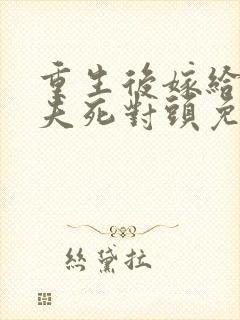 重生後嫁給
夫死對頭免
絲黛拉